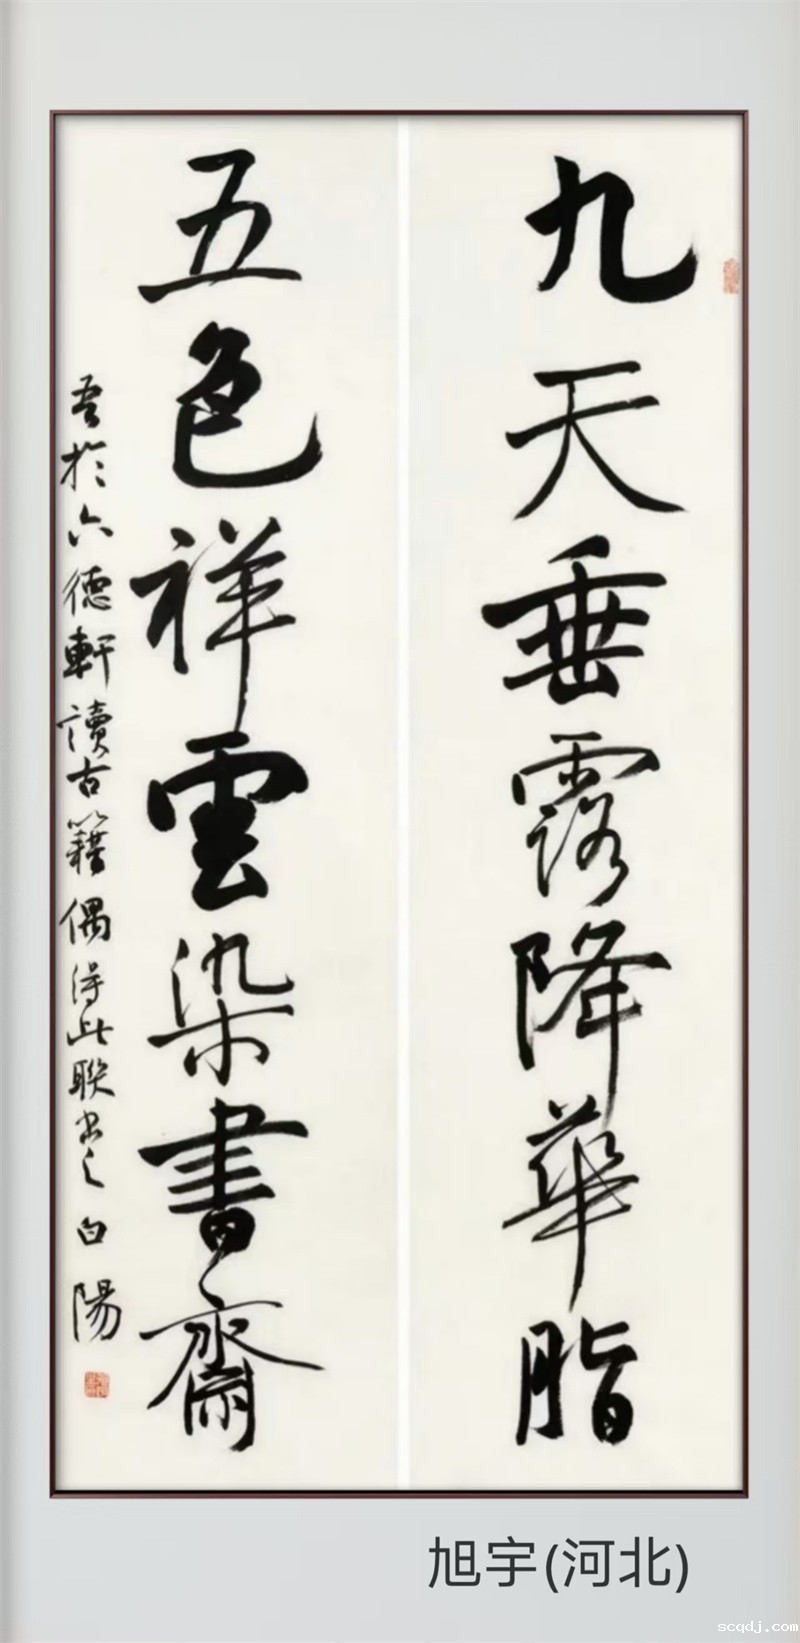 九天垂露降華脂
五色祥雲染書齋
吾於六德軒讀古籍偶得此聯書之白陽
旭宇(河北)
scqdj.com